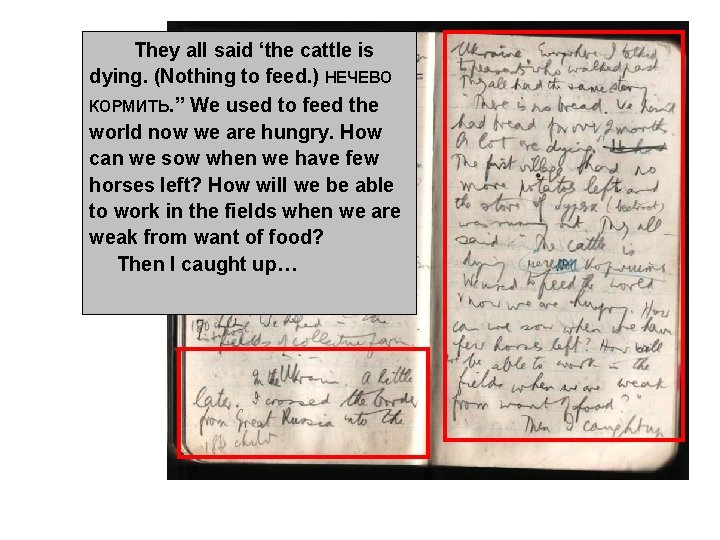 They all said ‘the cattle is
dying. (Nothing to feed.) НЕЧЕВО
КОРМИТЬ.” We used to feed the
world now we are hungry. How
can we sow when we have few
horses left? How will we be able
to work in the fields when we are
weak from want of food?
Then I caught up…
fields of collective farm
In the Ukraine. A little
later. I crossed the border
from Great Russia into the
Ukraine. Everywhere I talked
to peasants who walked past
They all had the same story
"There is no bread. We haven't
had bread for over 2 months.
A lot are dying."
The first village had no
more potatoes left and
the store of (beetroot)
was running out. They all
said "The cattle is
dying
We used to feed the world
now we are hungry. How
can we sow when we have
few horses left? How will
we be able to work in the
fields when we are weak
from want of food?"
Then I caught up